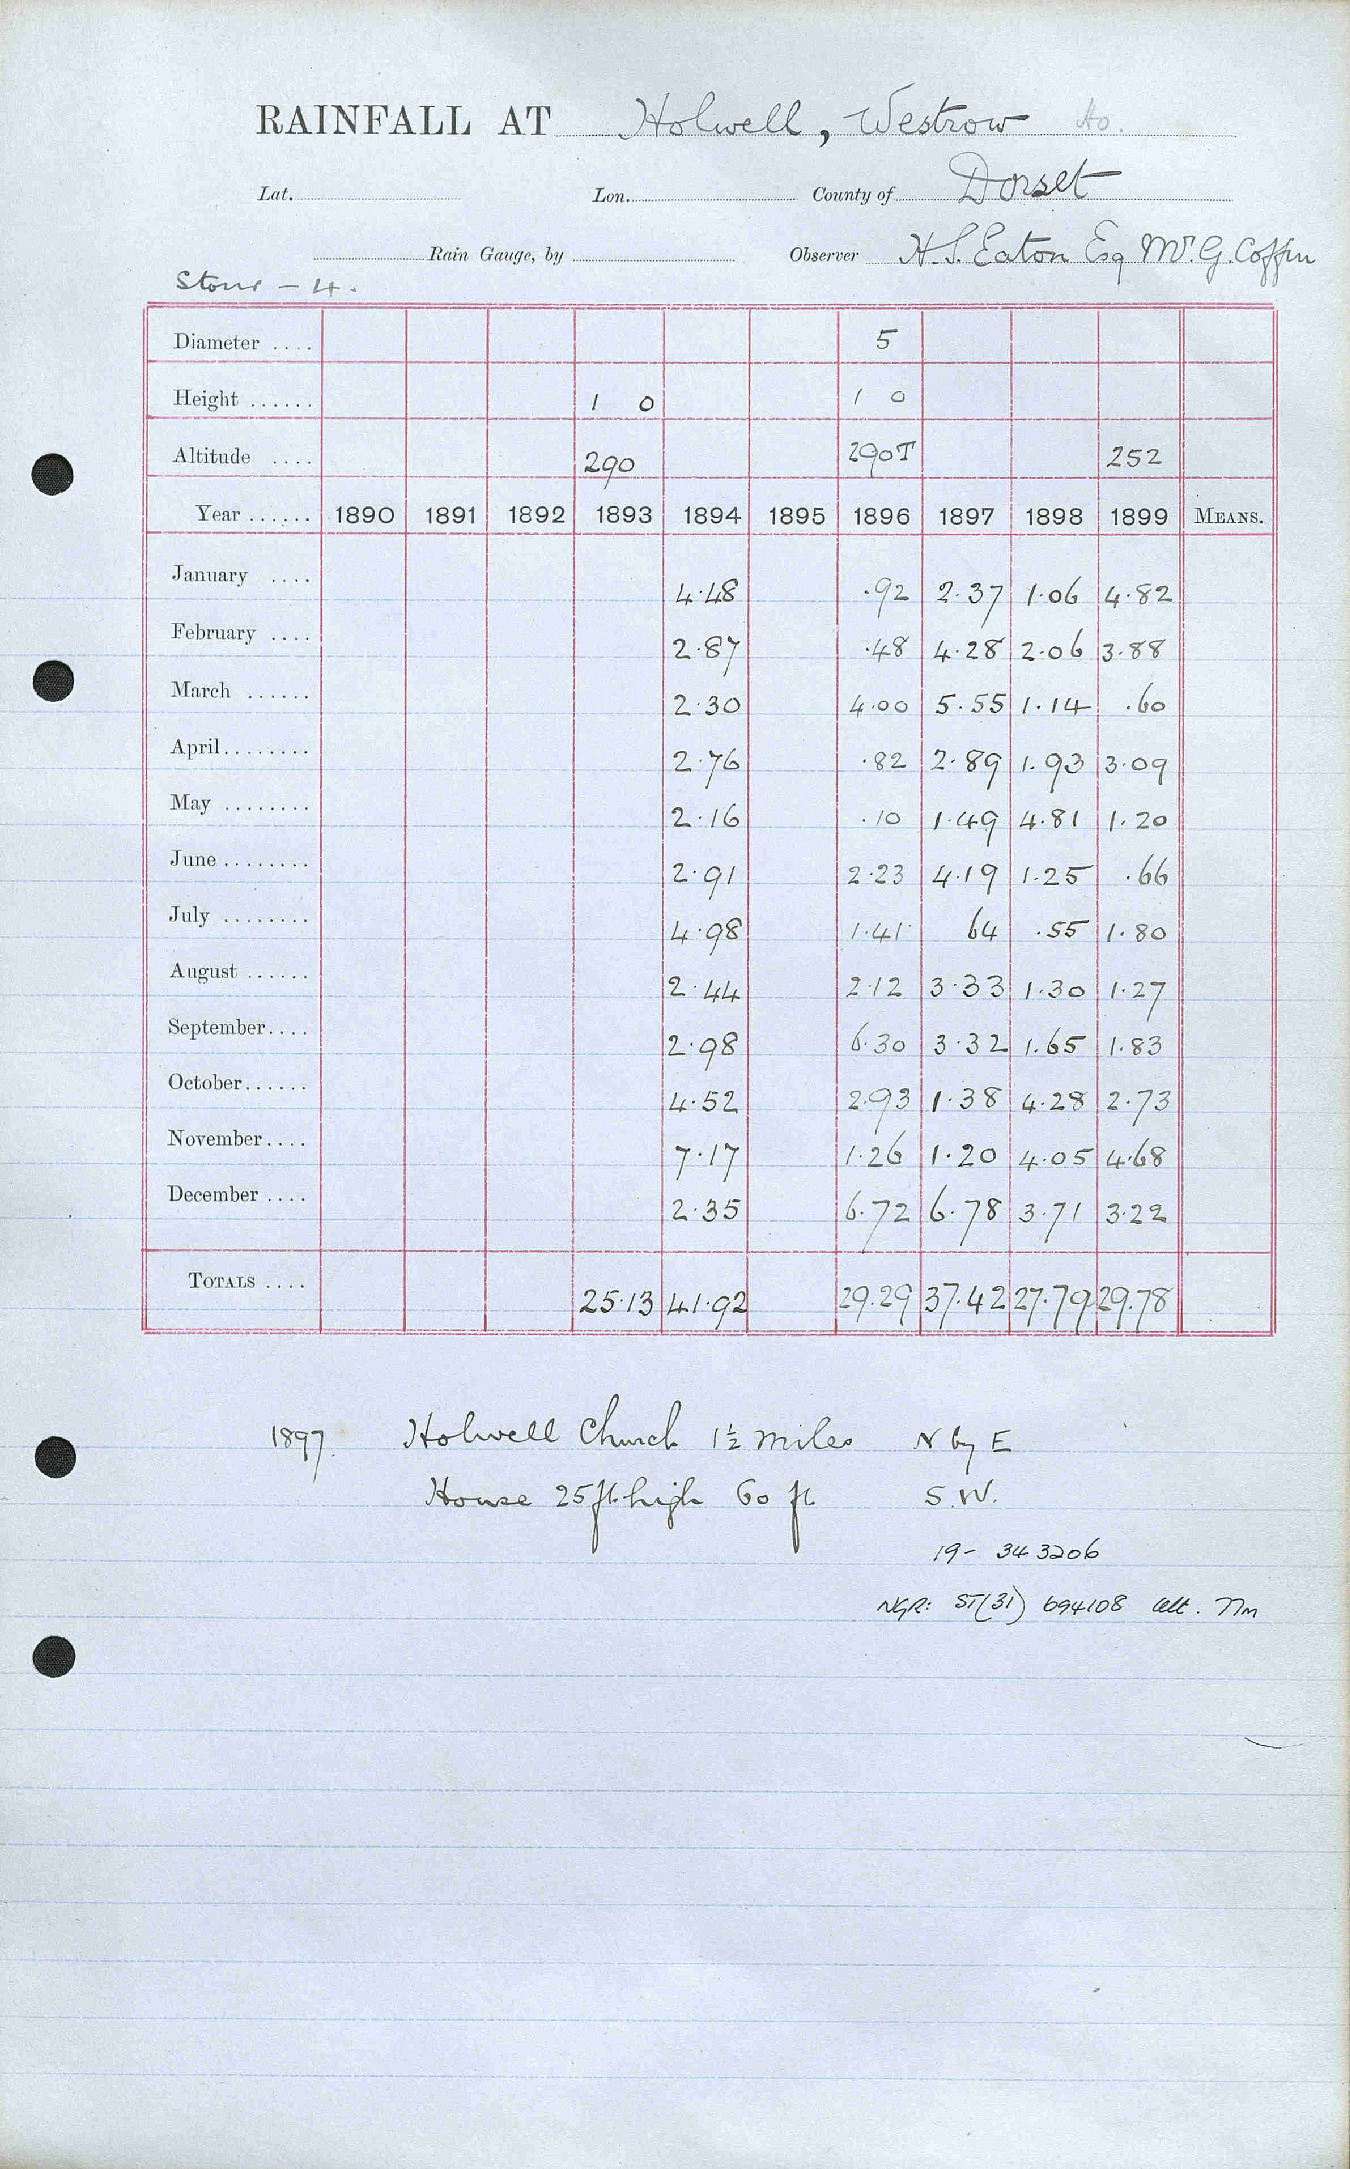 RAINFALL AT Holwell, Westrow Ho.
Lat. Lon. County of Dorset
Rain Gauge, by Observer H.S. Eaton Esq Mr. G. Coffin
Stour - 4.
Diameter .... 5
Height ...... 1 0 1 0
Altitude .... 290 290T 252
Year ...... 1890 1891 1892 1893 1894 1895 1896 1897 1898 1899 MEANS.
January .... 4.48 .92 2.37 1.06 4.82
February .... 2.87 .48 4.28 2.06 3.88
March ...... 2.30 4.00 5.55 1.14 .60
April........ 2.76 .82 2.89 1.93 3.09
May ........ 2.16 .10 1.49 4.81 1.20
June ........ 2.91 2.23 4.19 1.25 .66
July ........ 4.98 1.41 64 .55 1.80
August ...... 2.44 2.12 3.33 1.30 1.27
September.... 2.98 6.30 3.32 1.65 1.83
October...... 4.52 2.93 1.38 4.28 2.73
November.... 7.17 1.26 1.20 4.05 4.68
December .... 2.35 6.72 6.78 3.71 3.22
TOTALS .... 25.13 41.92 29.29 37.42 27.79 29.78
1897. Holwell Church 1½ miles N by E
House 25 ft. high 60 ft S.W.
19- 343206
NGR: ST(31) 694108 alt. 77m